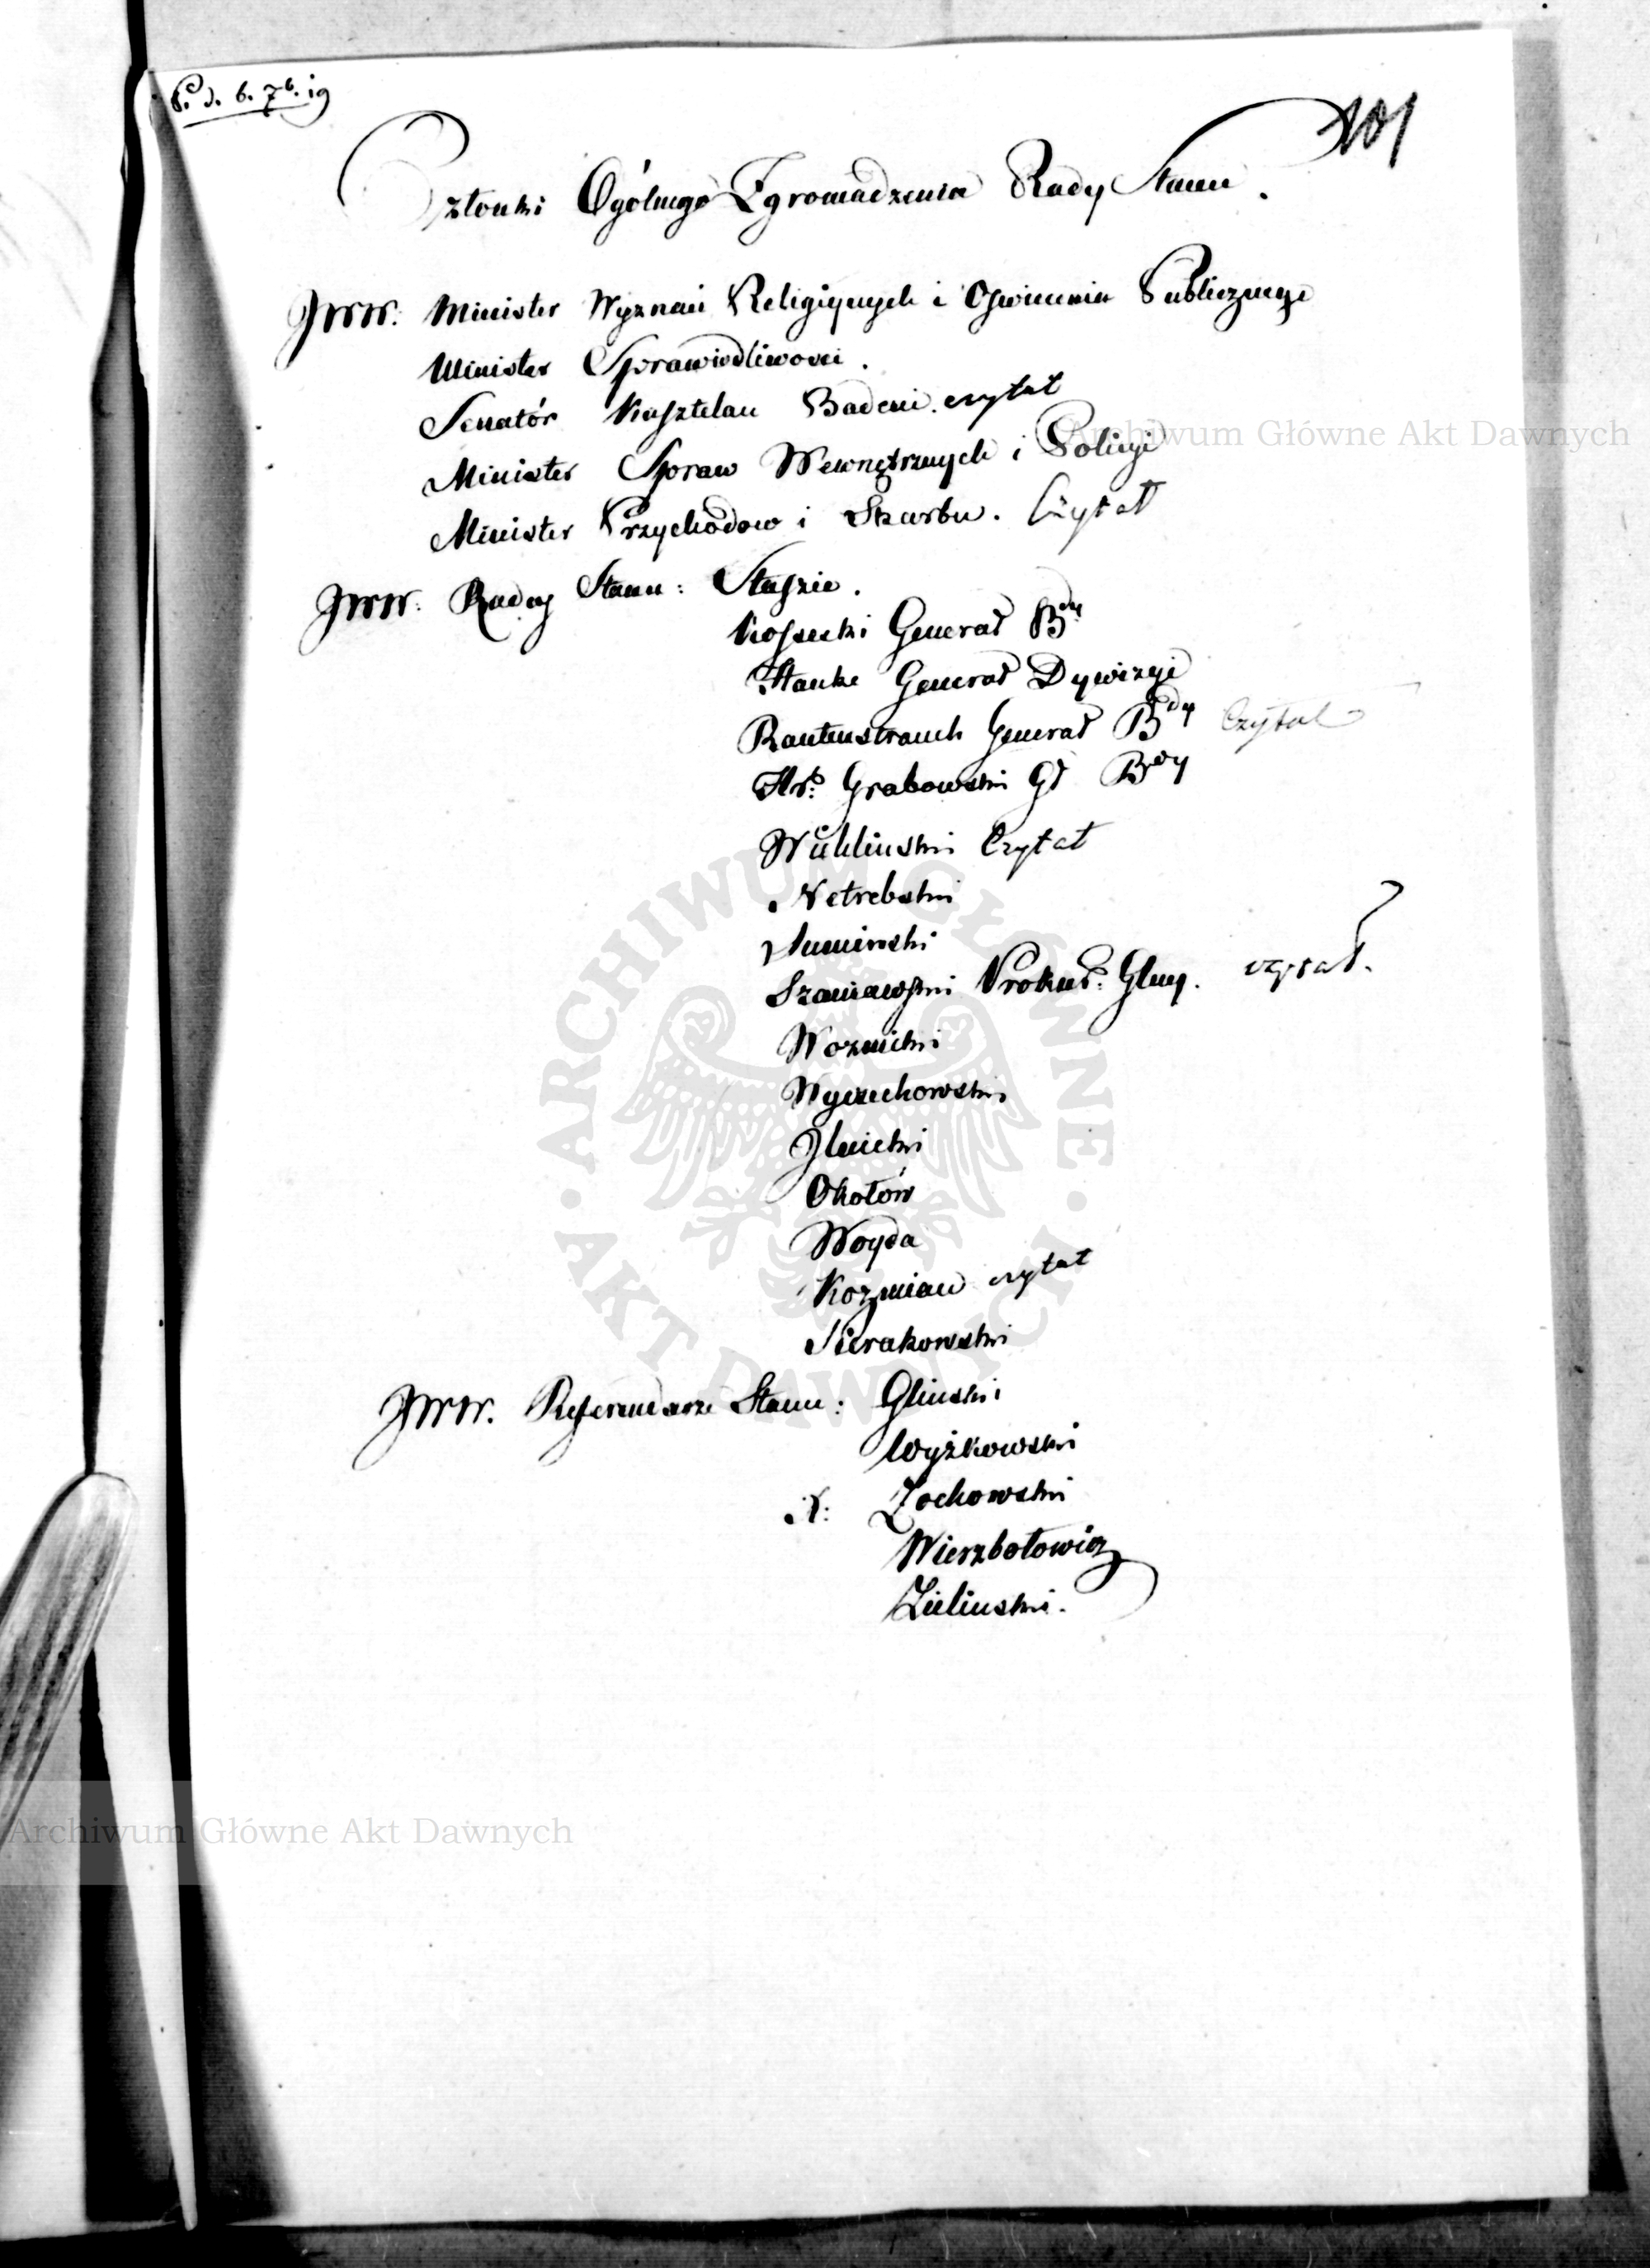 d. 6. 7b. 19
101
Członki Ogólnego Zgromadzenia Rady Stanu.
JWW. Minister Wyznań Religiynych i Oswiecenia Publicznego
Minister Sprawiedliwości.
Senatór Kasztelan Badeni. czytał
Minister Spraw Wewnętrznych i Policyi
Minister Przychodow i Skarbu. Czytał
JWW. Radcy Stanu: Staszic.
Kossecki Generał Bdy
Hauke Generał Dywizyi
Rautenstrauch Generał Bdy Czytał
Hr: Grabowski Gł Bdy
Wieliński Czytał
Netrebski
Szaniawski Prokur: Glny. czytał.
Woznicki
Wyczechowski
Jlnicki
Okołów
Woyda
Kozmian czytał
Sierakowski
JWW. Referendarze Stanu: Gliński
Wyżkowski
X: Żochowski
Wierzbołowicz
Zieliński.
Archiwum Główne Akt Dawnych
ARCHIWUM GŁÓWNE AKT DAWNYCH
Archiwum Główne Akt Dawnych